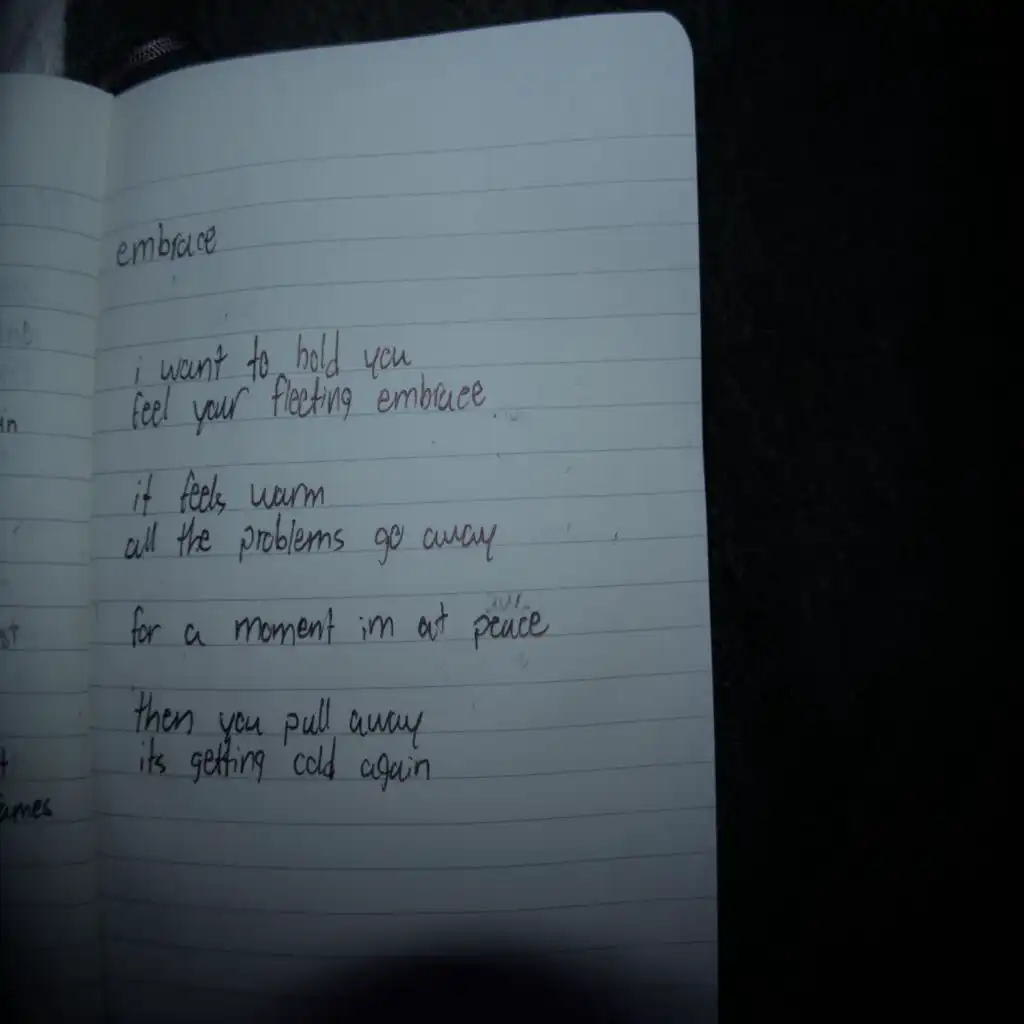 embrace
i want to hold you
feel your fleeting embrace
it feels warm
all the problems go away
for a moment im at peace
then you pull away
its getting cold again
in